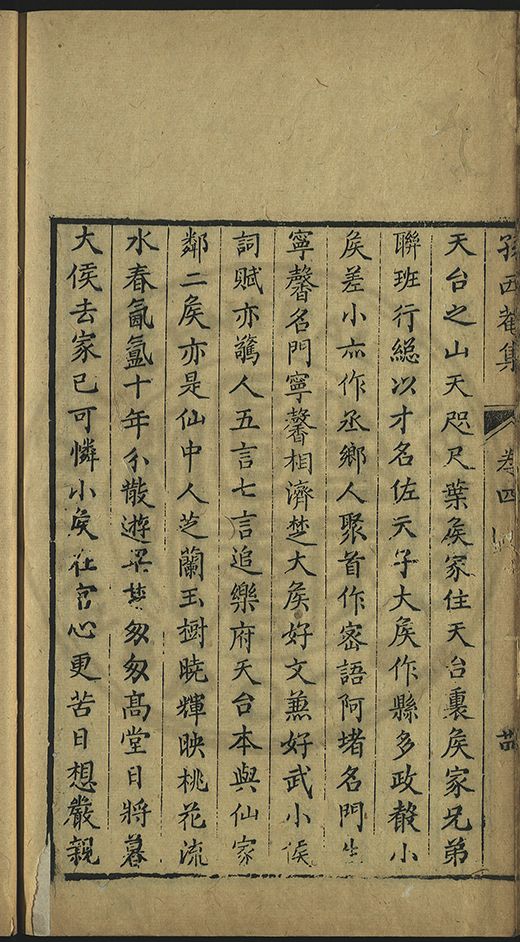 孫西菴集 卷四
天台之山天咫尺葉矦家住天台裏矦家兄弟
聯班行緫以才名佐天子大矦作縣多政聲小
矦差小亦作丞鄉人聚首作宻語阿堵名門生
寧馨名門寧馨相濟楚大矦好文兼好武小矦
詞賦亦驚人五言七言追樂府天台本與仙家
鄰二矦亦是仙中人芝蘭玉樹曉輝映桃花流
水春氤氳十年分散遊 匆匆髙堂日將暮
大侯去家已可憐小矦在官心更苦日想嚴親